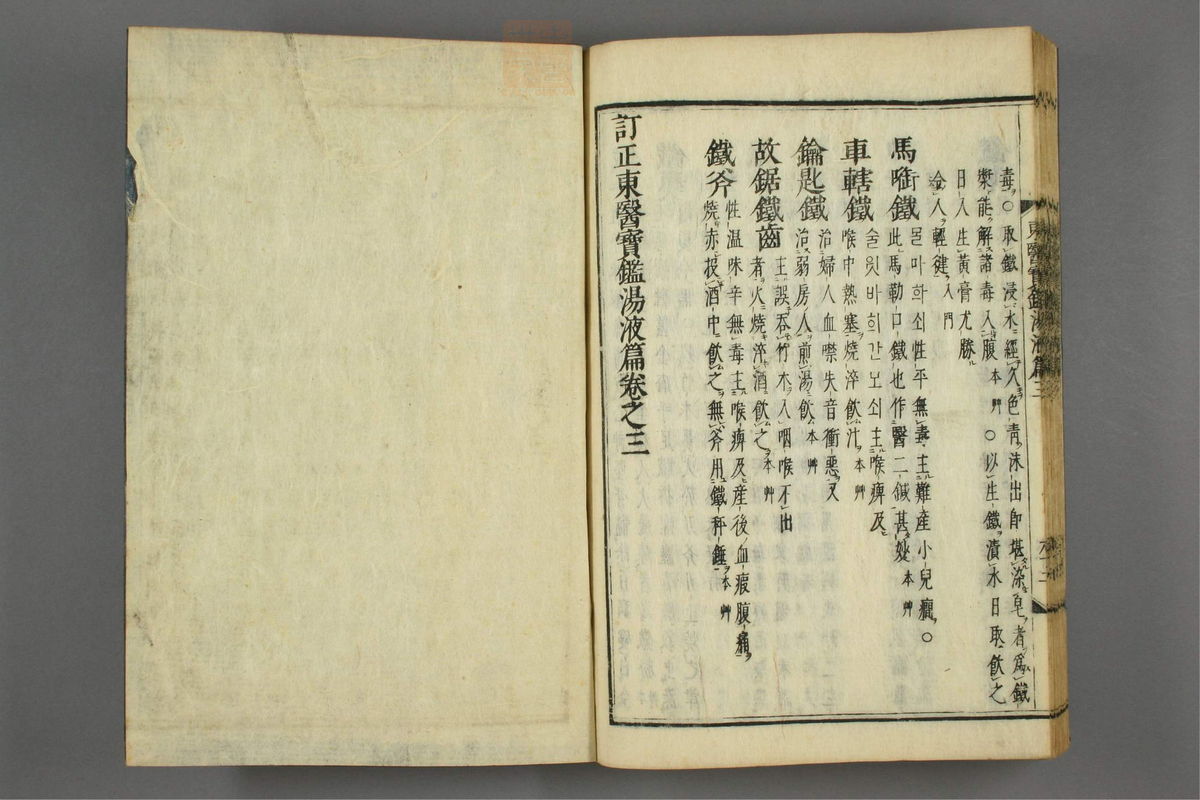 毒○取鐵浸水經久色青沫出即堪染皂者爲鐵
漿能解諸毒入腹本艸○以生鐵漬水日取飮之
日入生黃膏尤勝
令人輕健入門
馬啣鐵 믈마화쇠性平無毒主難產小兒癎○
此馬勒口鐵也作醫工鍼甚妙本艸
車轄鐵 술윗바희갇모쇠主喉痺及
喉中熱塞燒淬飮汁本艸
鑰匙鐵 治婦人血噤失音衝惡又
治弱房人煎湯飮本艸
故鋸鐵齒 主誤呑竹木入咽喉不出
者火燒淬酒飮之本艸
鐵斧 性温味辛無毒主喉痺及產後血瘕腹痛
燒赤投酒中飮之無斧用鐵秤錘本艸
訂正東醫寶鑑湯液篇卷之三
東醫寶鑑湯液篇三